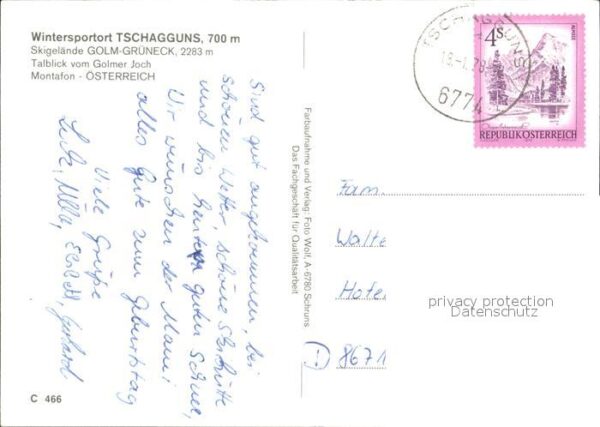 Wintersportort TSCHAGGUNS, 700 m
Skigelände GOLM-GRÜNECK, 2283 m
Talblick vom Golmer Joch
Montafon - ÖSTERREICH
Sind gut angekommen, bei
schönem Wetter, schöne Skihütte
und bis heute guten Schnee,
Wir wünschen der Mami
alles Gute zum Geburtstag
Viele Grüße
Gerhard
C 466
Farbaufnahme und Verlag: Foto Wolf, A-6780 Schruns
Das Fachgeschäft für Qualitätsarbeit
TSCHAGGUNS
6774
4 S
REPUBLIK ÖSTERREICH
Fam.
Walte
Hote
D 8671
privacy protection
Datenschutz